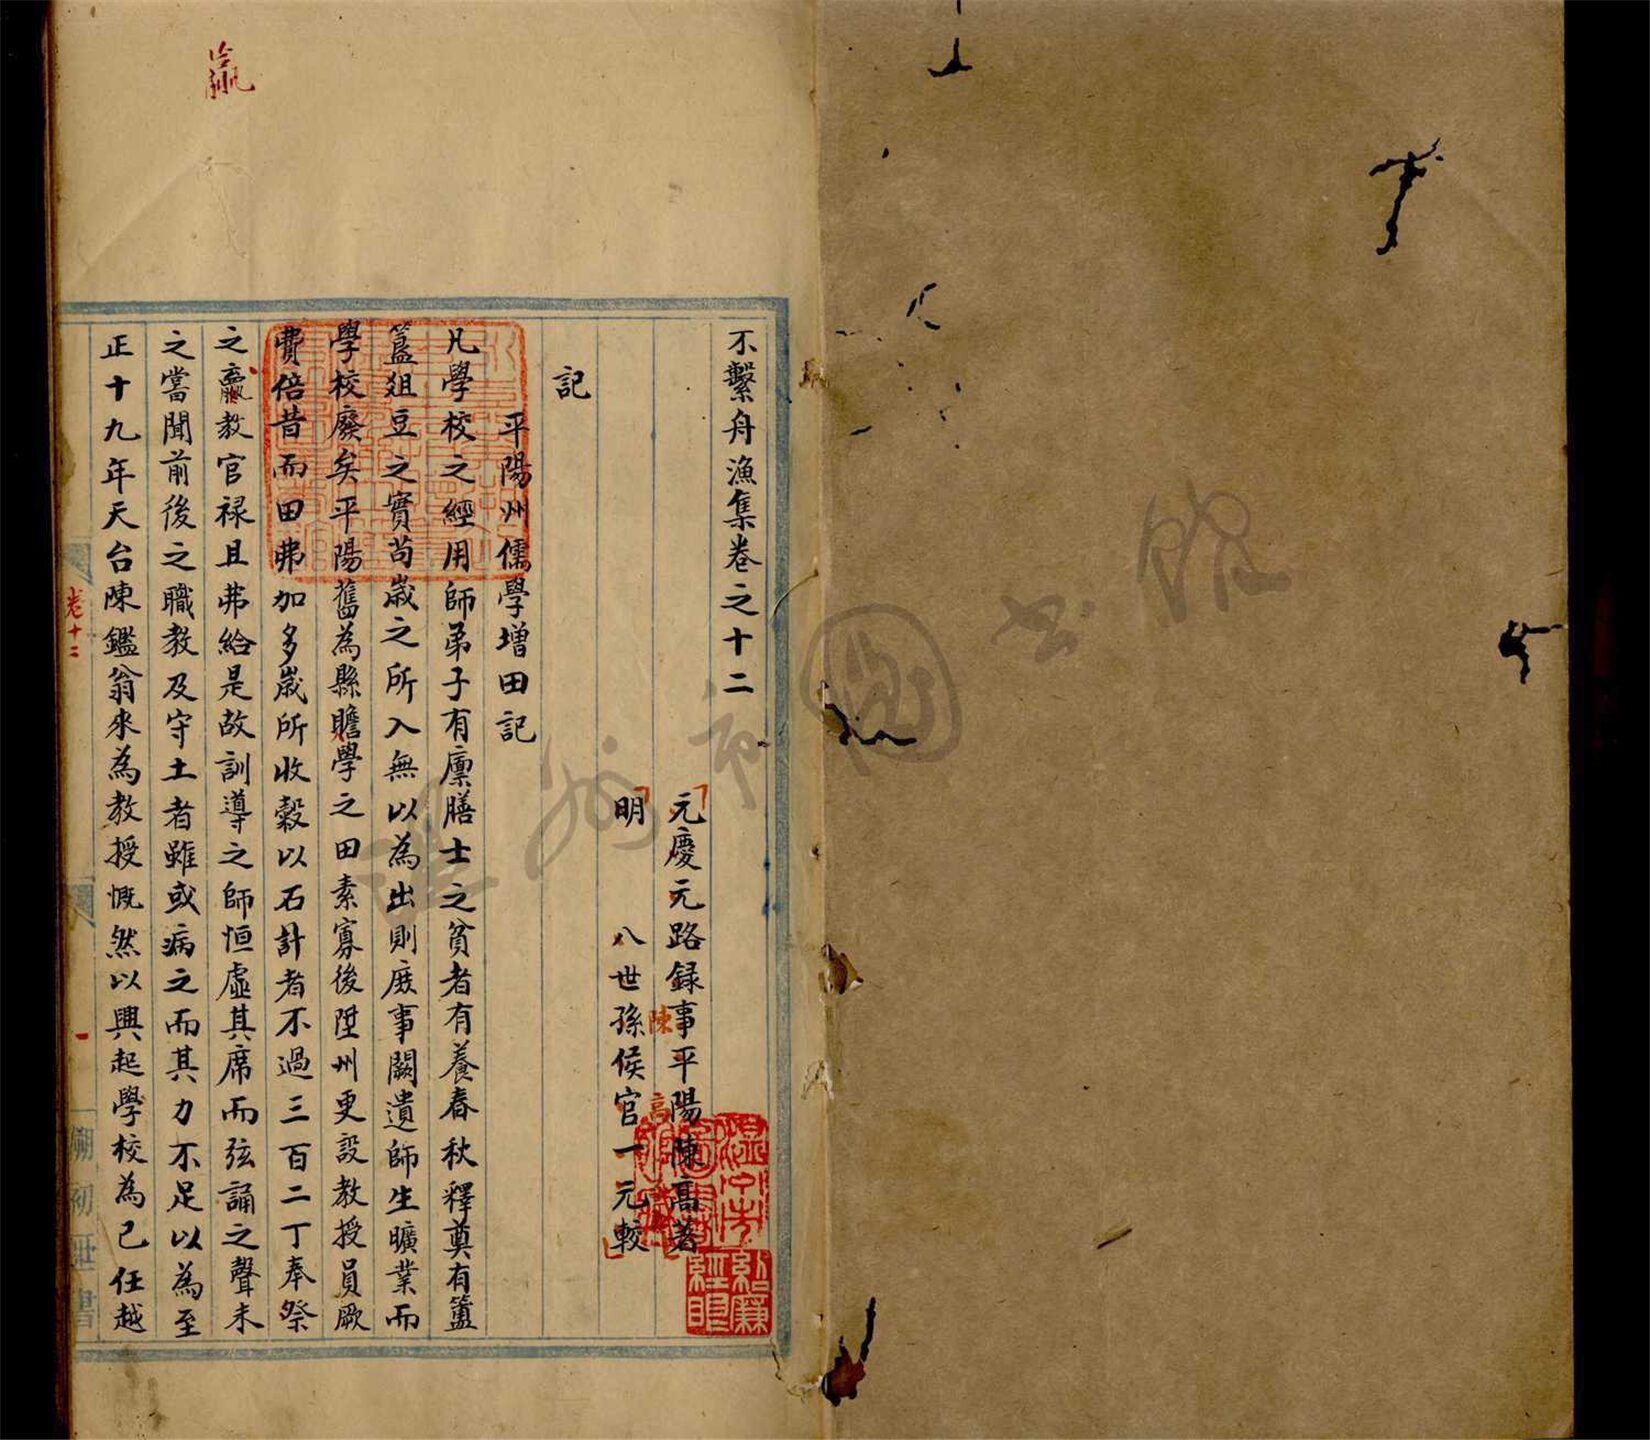 不繫舟漁集卷之十二
元慶元路録事平陽陳高著
明 八世孫侯官一元較
陳
高
記
平陽州儒學增田記
凡學校之經用師弟子有廪膳士之貧者有養春秋釋奠有簠
簋俎豆之實苟歲之所入無以為出則庶事闕遺師生曠業而
學校廢矣平陽舊為縣贍學之田素寡後陞州更設教授員厥
費倍昔而田弗加多歲所收穀以石計者不過三百二丁奉祭
之羸教官禄且弗給是故訓導之師恒虛其席而弦誦之聲未
之嘗聞前後之職教及守土者雖或病之而其力不足以為至
正十九年天台陳鑑翁來為教授慨然以興起學校為己任越
贏
卷十二
一
溫州市圖書館